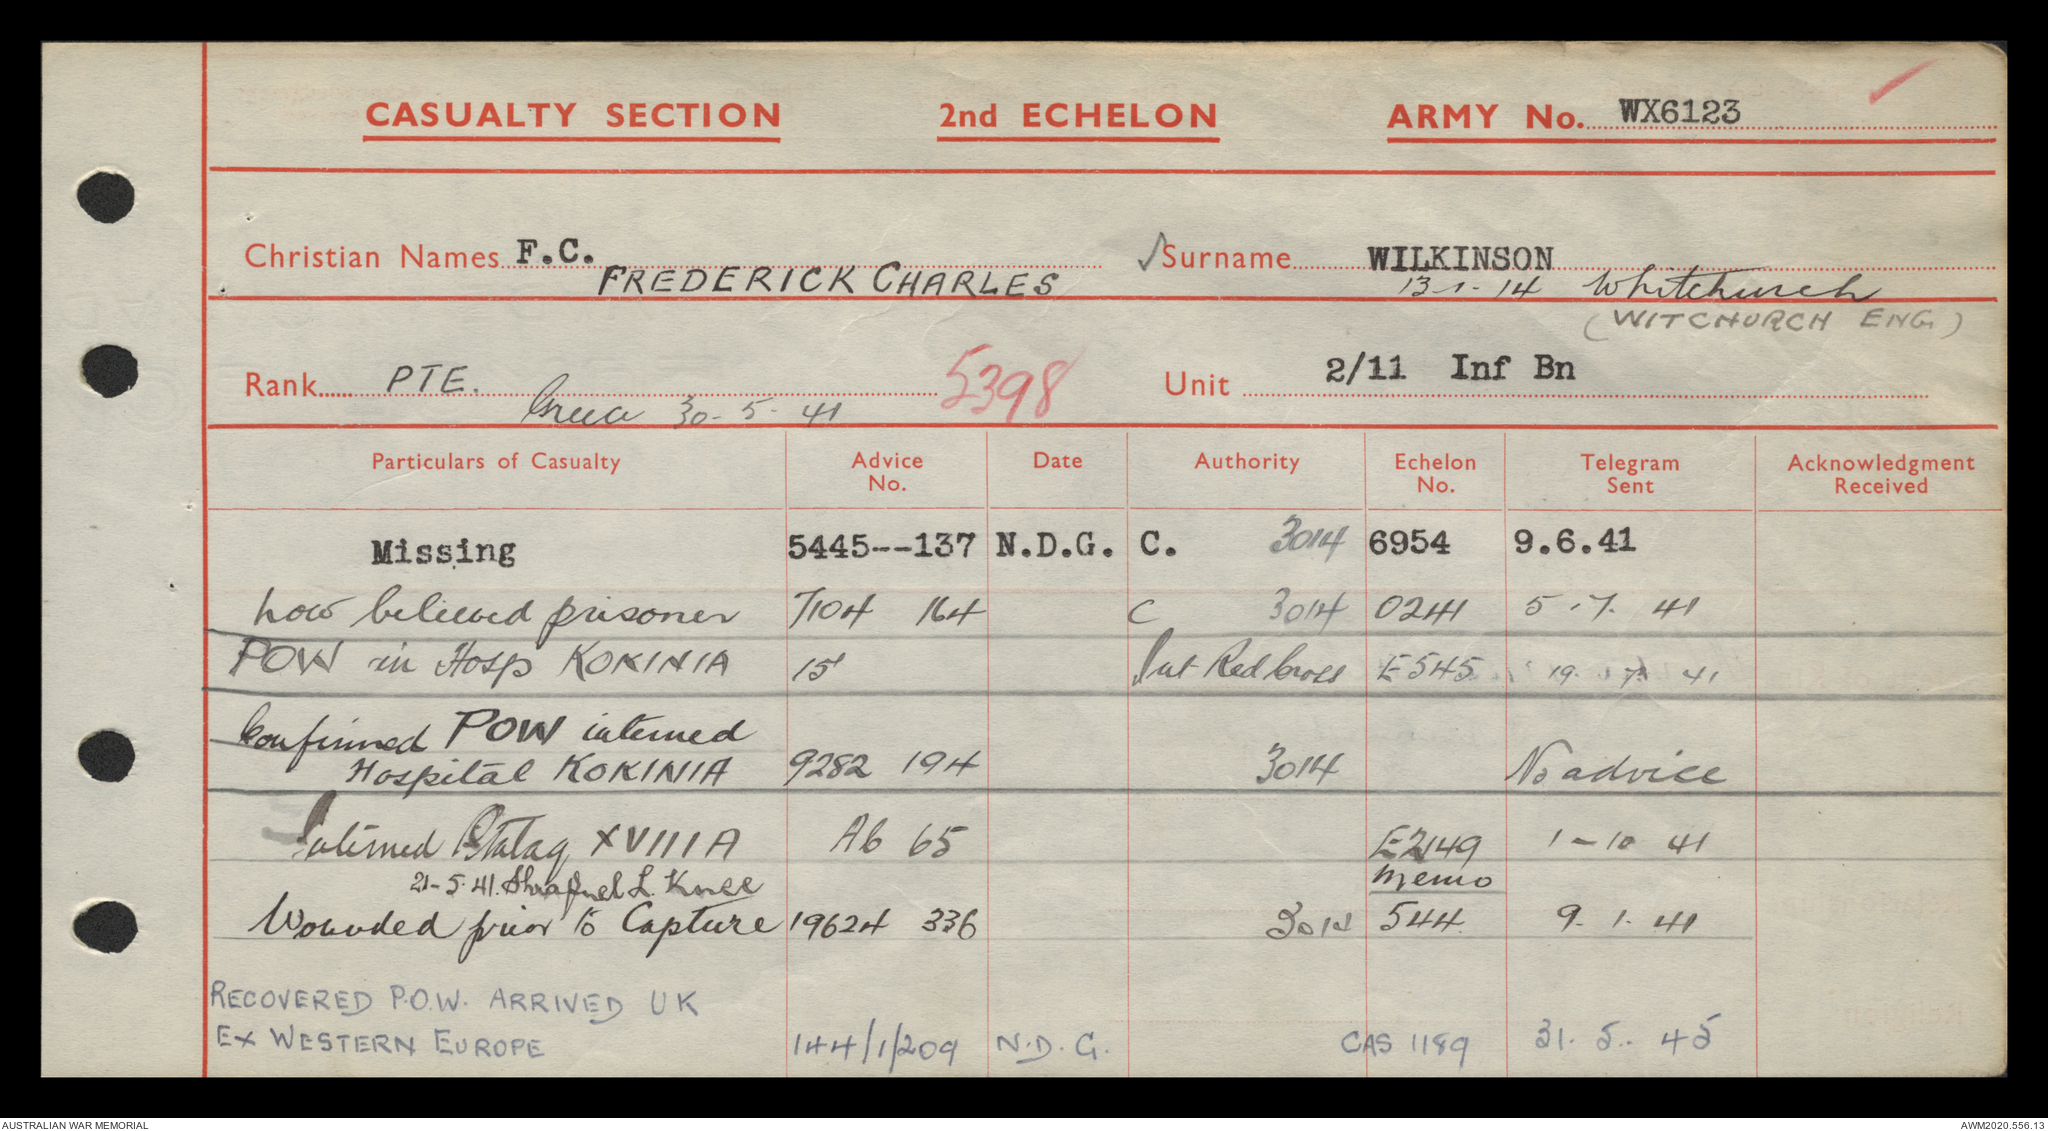 CASUALTY SECTION 2nd ECHELON ARMY No. WX6123
Christian Names F.C. Surname WILKINSON
FREDERICK CHARLES 13-1-14 Whitchurch
(WITCHURCH ENG)
Rank PTE. 5398 Unit 2/11 Inf Bn
30-5-41
Particulars of Casualty Advice No. Date Authority Echelon No. Telegram Sent Acknowledgment Received
Missing 5445--137 N.D.G. C. 3014 6954 9.6.41
now believed prisoner 7104 164 C 3014 0241 5.7.41
POW in Hosp KOKINIA 15 Int Red Cross E545 19.7.41
Confirmed POW interned
Hospital KOKINIA 9282 194 3014 No advice
Interned Stalag XVIIIA Ab 65 E2149 1-10 41
21-5-41. Shrapnel L. Knee Memo
Wounded prior to Capture 19624 336 3014 544 9.1.41
RECOVERED P.O.W. ARRIVED UK
EX WESTERN EUROPE 144/1/209 N.D.G. CAS 1189 31.5.45
AUSTRALIAN WAR MEMORIAL AWM2020.556.13